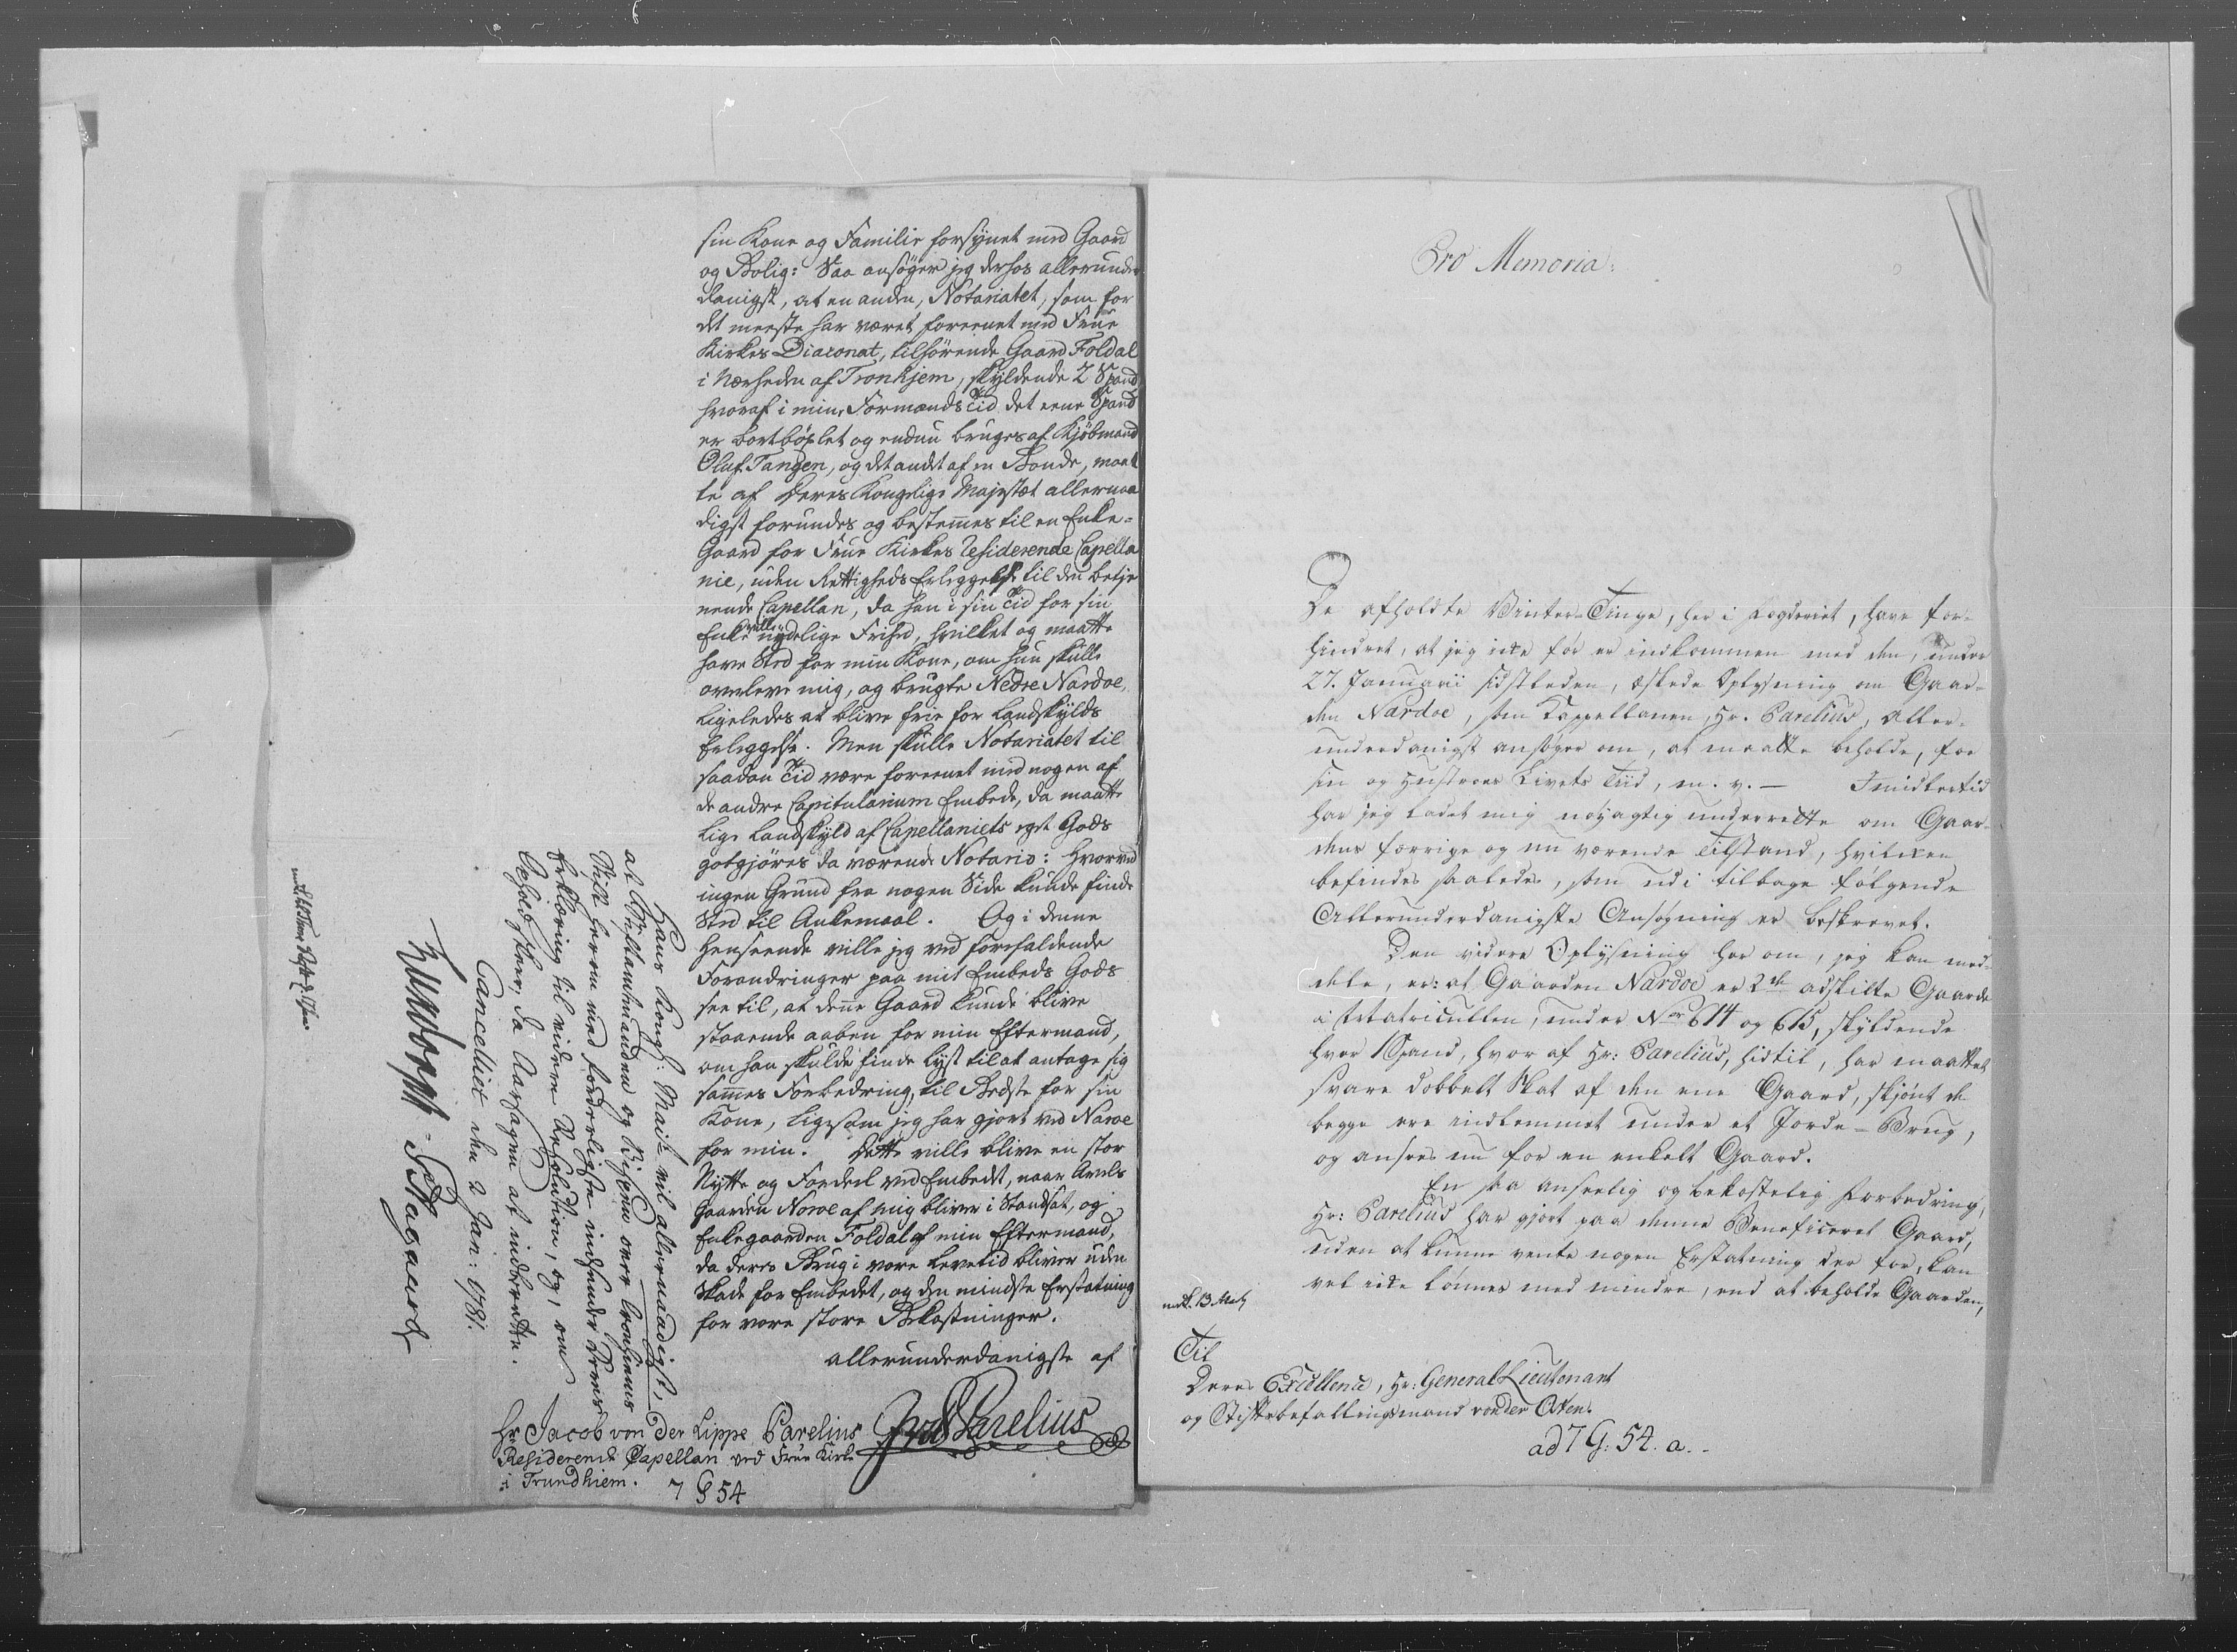 sin Kone og Familie forsynet med Gaard
og Bolig: Saa ansøger jeg derhos allerunder
danigst, at en anden, Notariatet, som for
det meeste har været foreenet med Frue
Kirkes Diaconat, tilhørende Gaard Foldal
i Nærheden af Tronhjem, skyldende 2 Spand
hvoraf i min Formands Tid det eene Spand
er bortbøxlet og endnu bruges af Kjøbmand
Oluf Tangen, og det andet af en Bonde, maat
te af Deres Kongelige Majestæt allernaa
digst forundes og bestemmes til en Enke-
Gaard for Frue Kirkes Residerende Capella
nie, uden Rettigheds Erleggelse til den betje
nende Capellan, da han i sin Tid for sin
Enke ville nyde lige Frihed, hvilket og maatte
have Sted for min Kone, om hun skulle
overleve mig, og brugte Nedre Nardoe,
ligeledes at blive frie for Landskylds
Erleggelse. Men skulle Notariatet til
saadan Tid være foreenet med nogen af
de andre Capitularium Embede, da maatte
lige Landskyld af Capellaniets eget Gods
gotgjøres da værende Notario: hvorved
ingen Grund fra nogen Side kunde finde
Sted til Ankemaal. Og i denne
Henseende ville jeg ved forefaldende
Forandringer paa mit Embeds Gods
see til, at denne Gaard kunde blive
staaende aaben for min Eftermand,
om han skulde finde Lyst til at antage sig
sammes Forbedring, til Bedste for sin
Kone, ligesom jeg har gjort ved Naroe
for min. Dette ville blive en stor
Nytte og Fordeel ved Embedet, naar Avels
Gaarden Naroe af mig bliver i Standsat, og
Enkegaarden Foldal af min Eftermand,
da deres Brug i vore Levetid bliver uden
Skade for Embedet, og den mindste Erstatning
for vore store Bekostninger.
allerunderdanigste af
JvdLParelius
Hr Jacob von Der Lippe Parelius
Residerende Capellan ved Frue Kirke
i Trundhiem. 7 G 54
Hans Kongl: Mait vil allernaadigst,
at Stiftamtmanden og Bispen over Tronhiems
Stift herom med forderligste indsender Deres
Erklæring til videre Resolution, og, om
behøves, da Aarsagen at indberette.
Cancelliet den 2 Jan: 1781.
Luxdorph. Aagaard
Pro Memoria.
De afholdte Vinter-Tinge, her i Fogderiet, have for-
hindret, at jeg ikke før er indkommen med den, under
27. Januarii sidstleden, æskede Oplysning om Gaar-
den Nardoe, som Cappellanen, Hr. Parelius, aller-
underdanigst ansøger om, at maatte beholde, for
sin og Hustrues Livets Tiid, m. v. — Imidlertid
har jeg ladet mig nøyagtig underrette om Gaar-
dens forrige og nu værende Tilstand, hvilken
befindes saaledes, som udi tilbage følgende
Allerunderdanigste Ansøgning er beskrevet.
Den videre Oplysning her om, jeg kan med-
dele, er: at Gaarden Nardoe er 2de adskilte Gaarde
i Matriculen, under Nor 614 og 615, skyldende
hver 1 Spand, hvor af Hr: Parelius, hidtil, har maattet
svare dobbelt Skat af den ene Gaard, skjønt de
begge ere indlemmet under et Jorde-Brug,
og ansees nu for en enkelt Gaard.
En saa anseelig og bekostelig Forbedring,
Hr: Parelius har gjort paa denne Beneficeret Gaard,
uden at kunne vente nogen Erstatning der for, kan
vel ikke lønnes med mindre, end at beholde Gaarden,
Til
Deres Excellence, Hr: General Lieutenant
og Stiftsbefallingsmand von der Osten.
ad 7 G. 54. a.